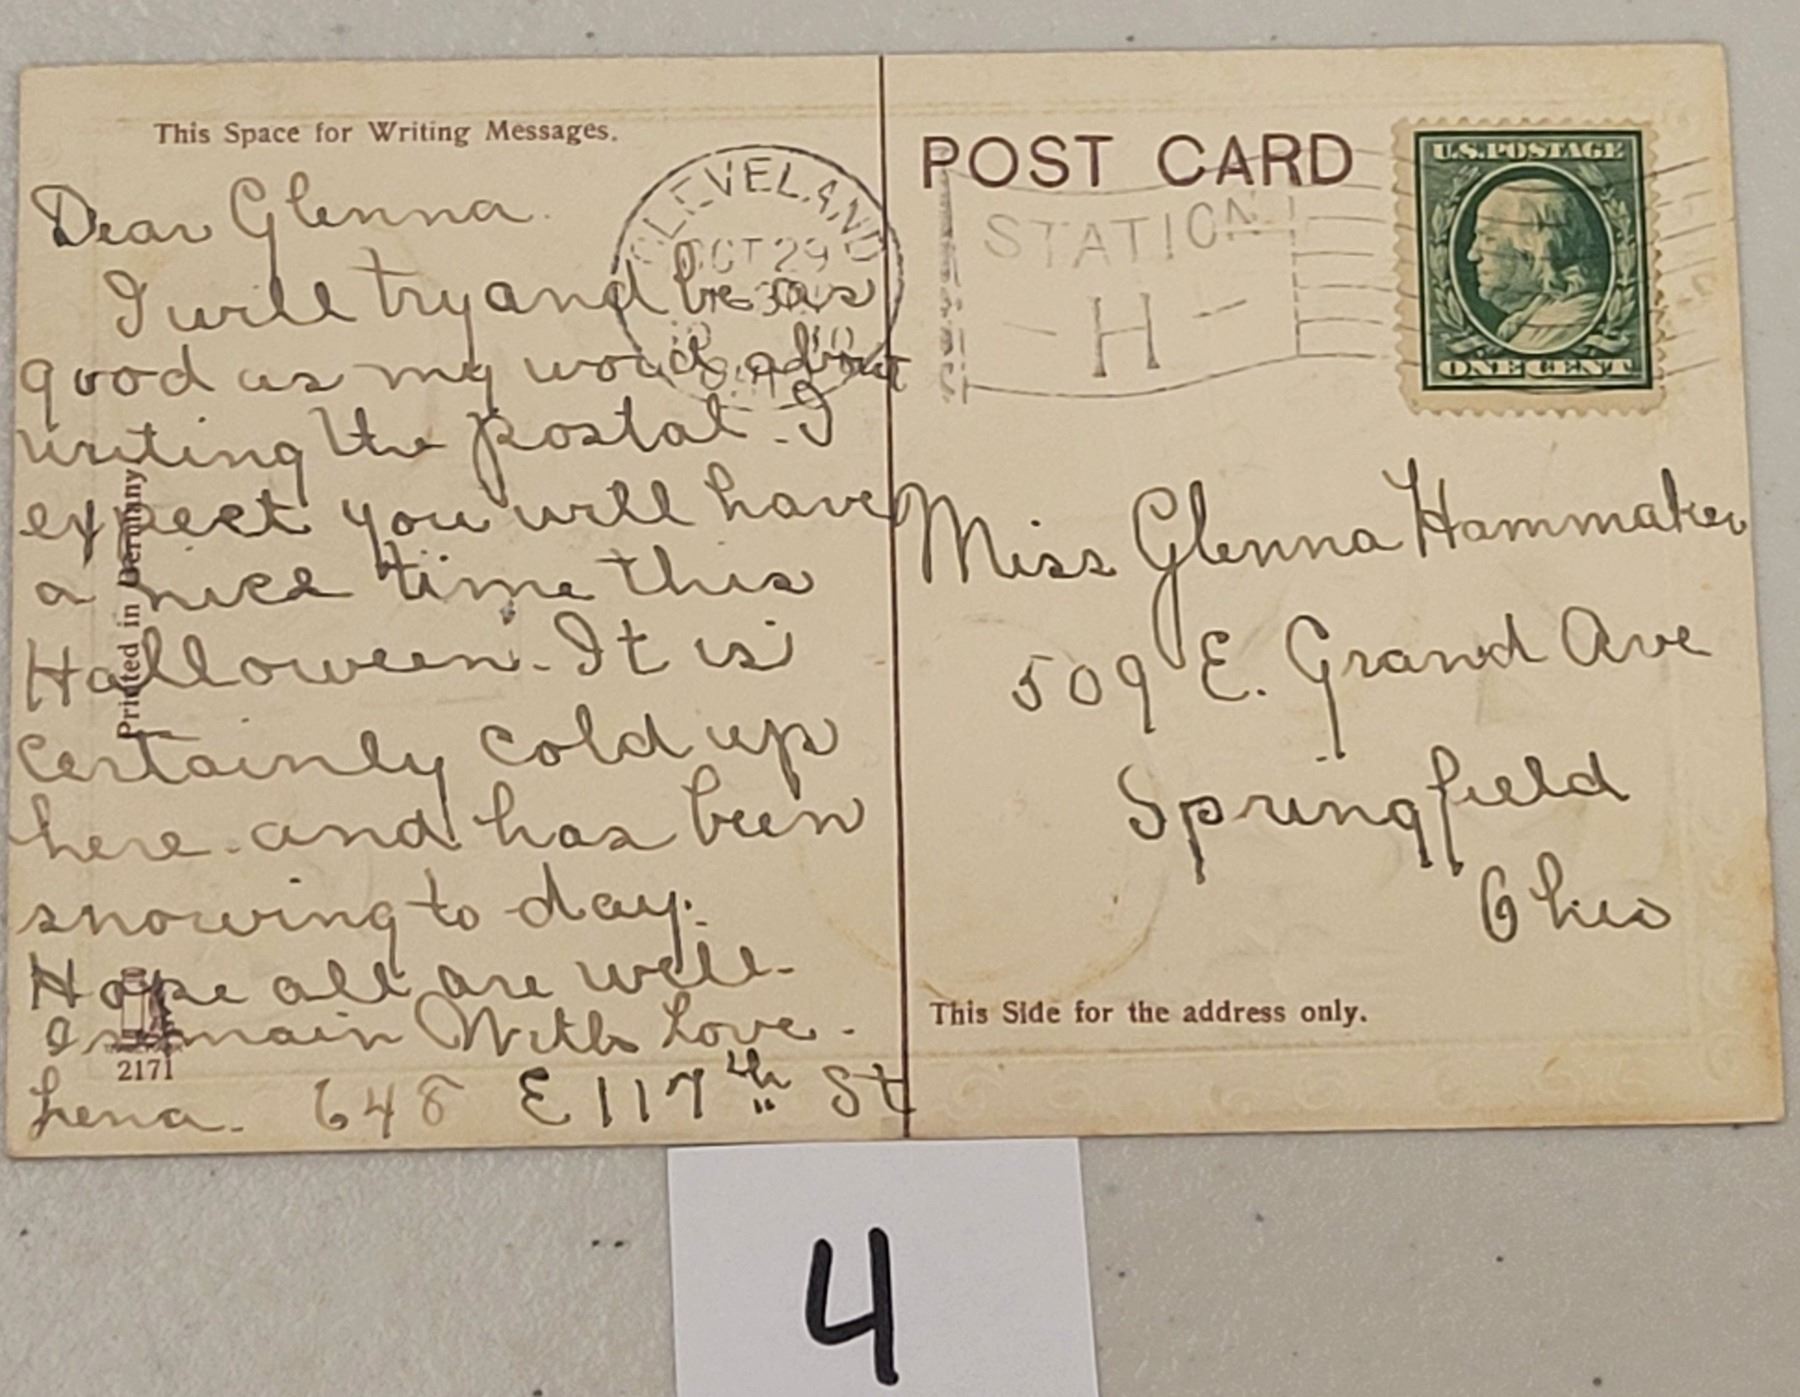 This Space for Writing Messages.
Dear Glenna.
I will try and be as
good as my word about
writing the postal. I
expect you will have
a nice time this
Halloween. It is
certainly cold up
here. and has been
snowing to day.
Hope all are well.
I remain With Love.
Lena. 648 E 117th St
Printed in Germany
2171
CLEVELAND
OCT 29
POST CARD
STATION
- H -
U.S. POSTAGE
ONE CENT
Miss Glenna Hammaker
509 E. Grand Ave
Springfield
Ohio
This Side for the address only.
4